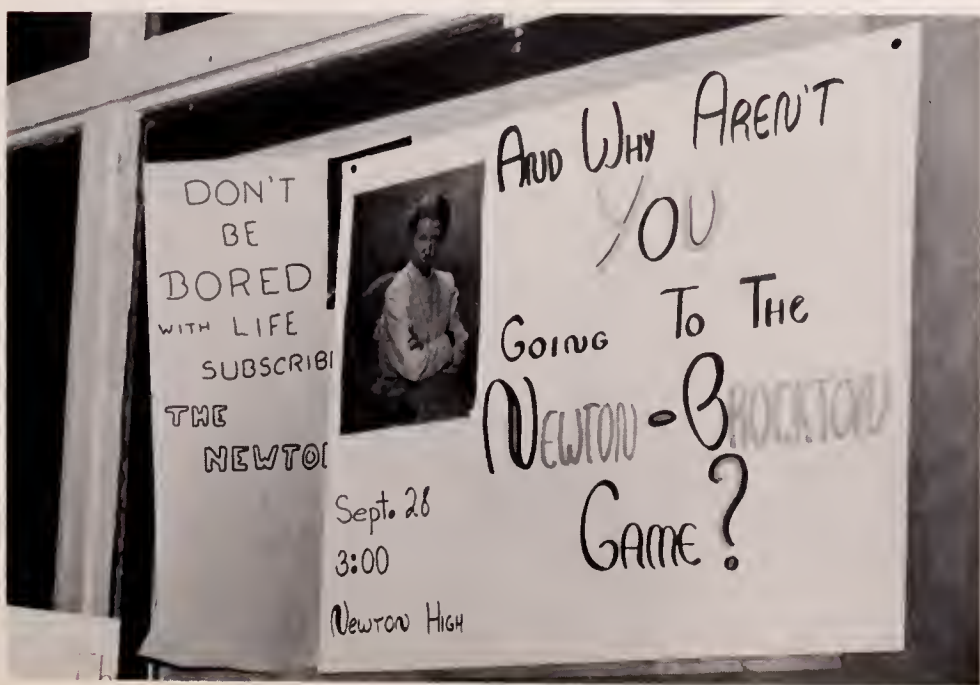 DON'T
BE
BORED
WITH LIFE
SUBSCRIB
THE
NEWTO
AND WHY AREN'T
YOU
GOING TO THE
NEWTON - BROCKTON
GAME?
Sept. 28
3:00
NEWTON HIGH